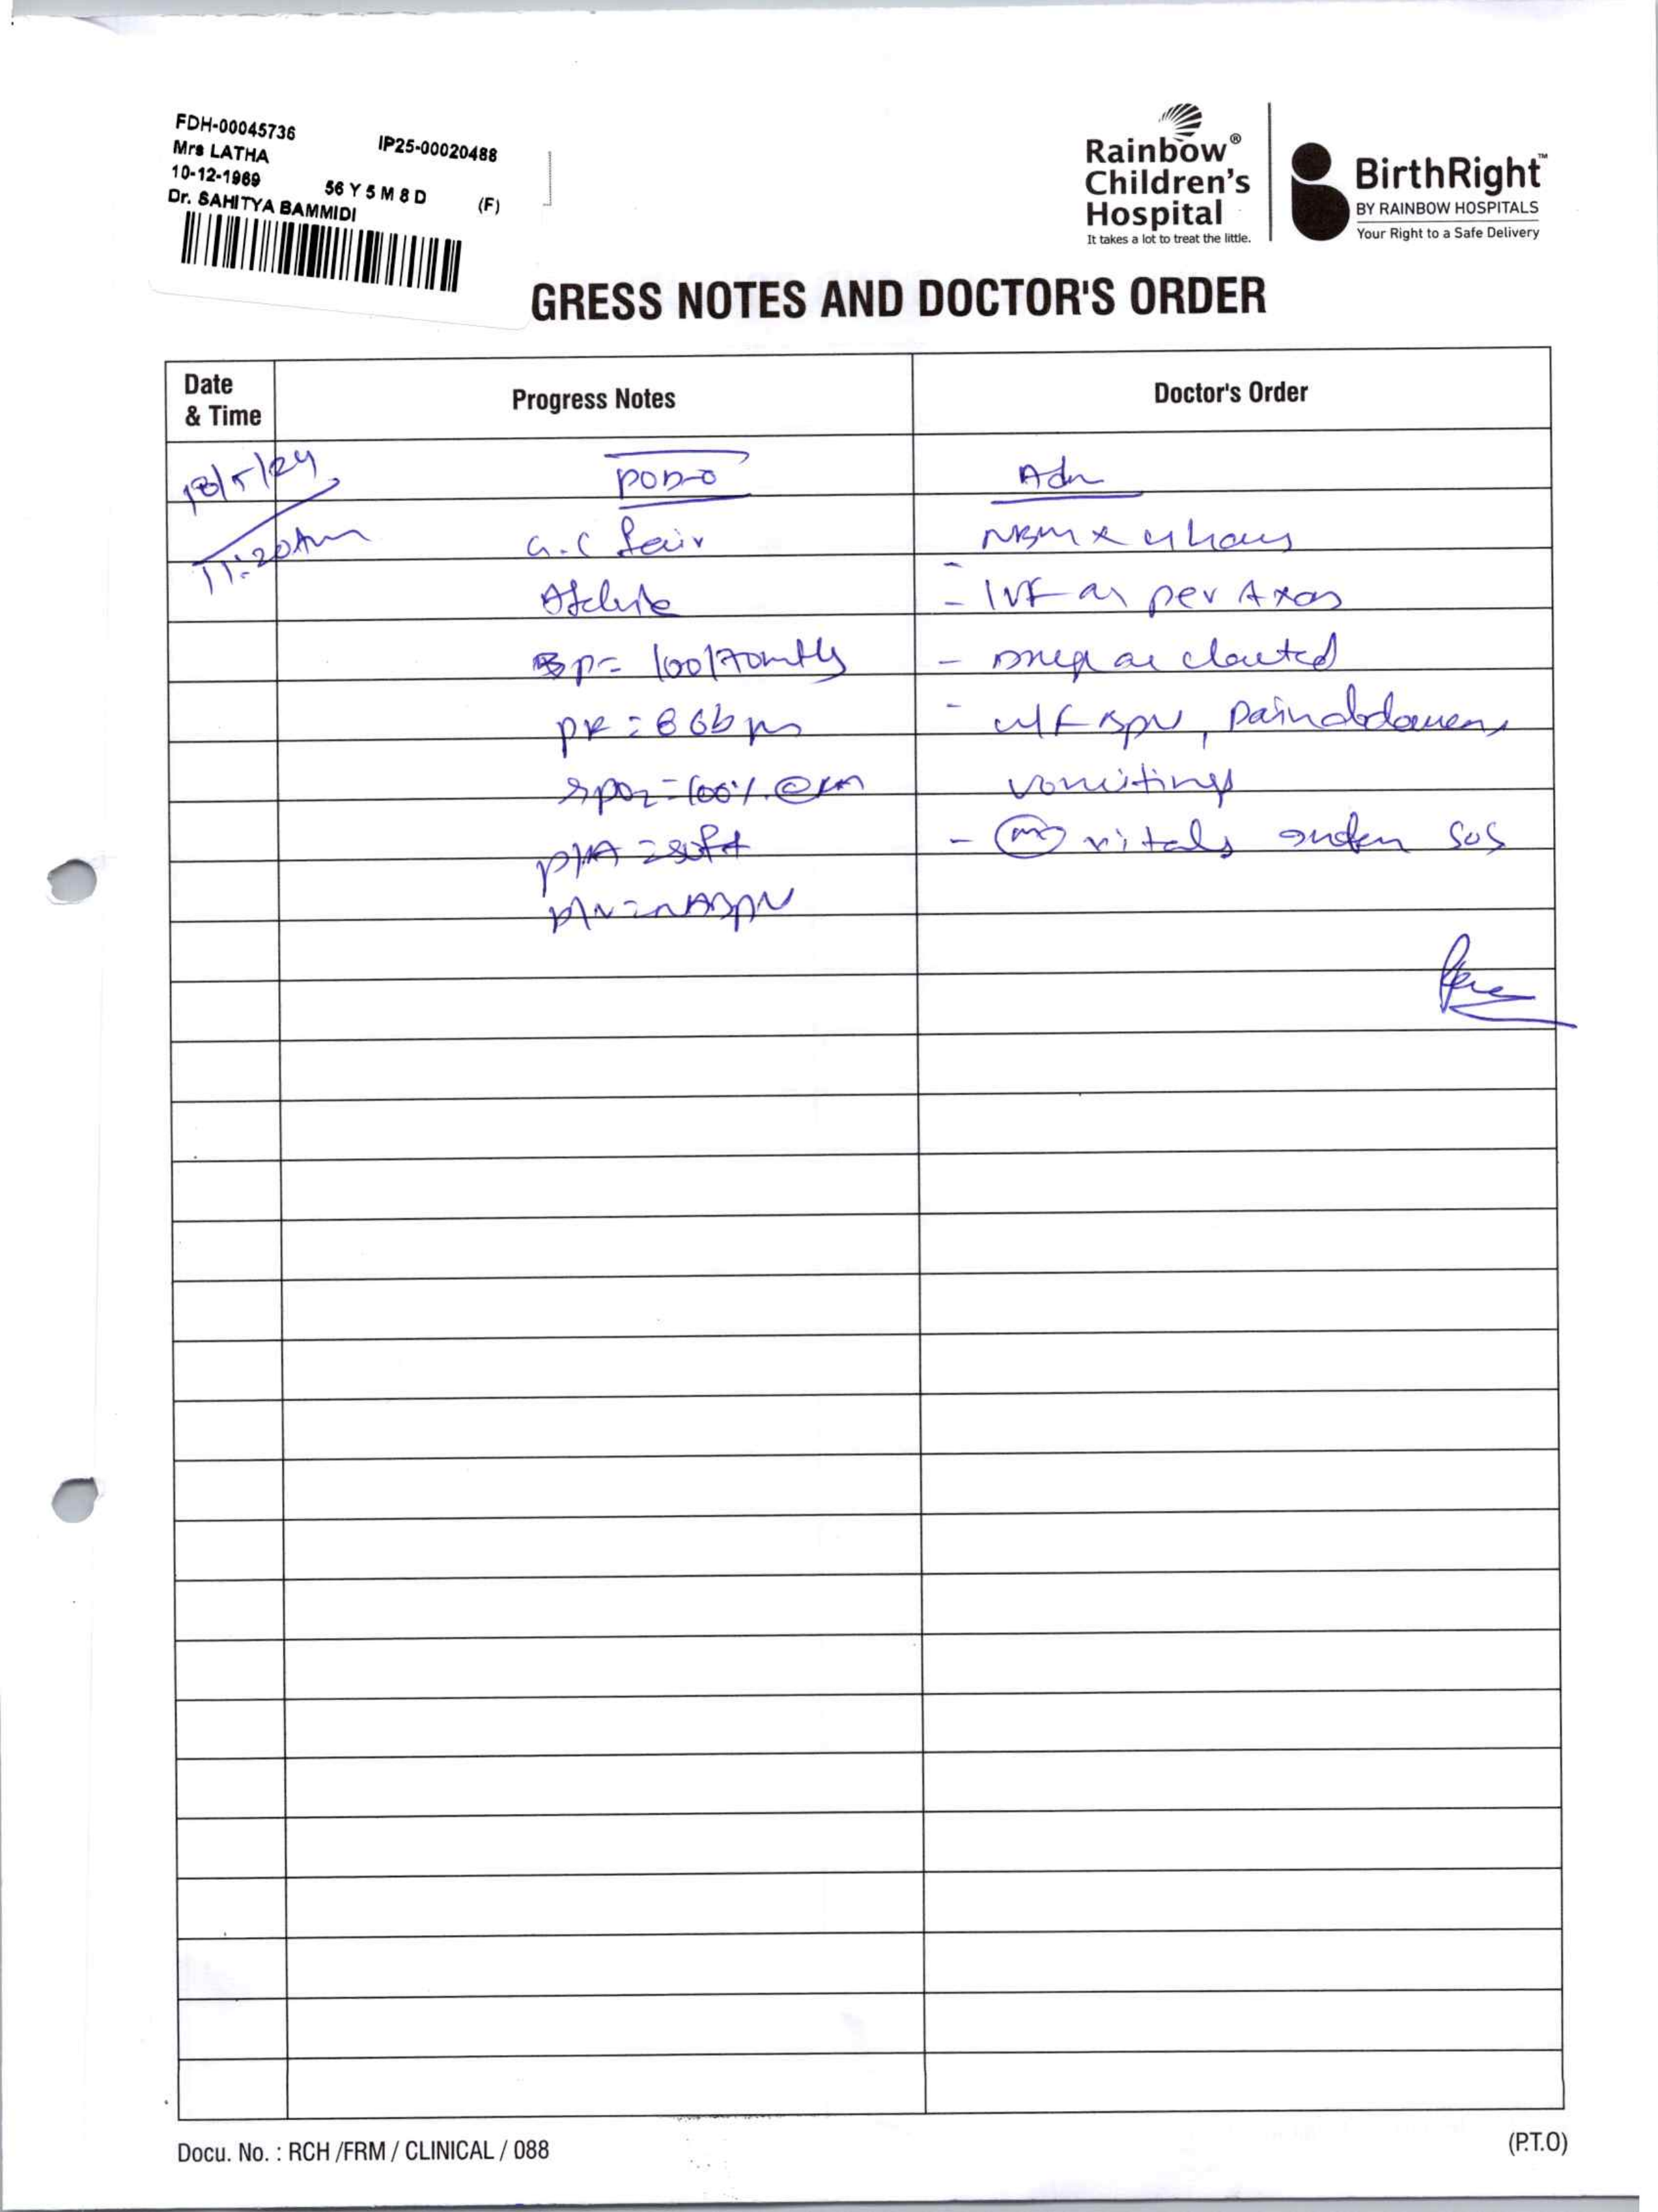 FDH-00045736
IP25-00020488
Mrs LATHA
10-12-1969
56 Y 5 M 8 D (F)
Dr. SAHITYA BAMMIDI
Rainbow®
Children's
Hospital
It takes a lot to treat the little.
BirthRight™
BY RAINBOW HOSPITALS
Your Right to a Safe Delivery
GRESS NOTES AND DOCTOR'S ORDER
Date & Time
Progress Notes
Doctor's Order
18/5/24
POD-0
Adv
11:20Am
G.C fair
NBM x 4 hours
Afebrile
- IVF as per
BP= 100/70mmHg
- Drugs as charted
PR = 86bpm
- W/F BPV, Pain abdomen,
SpO2 = 100% @ RA
vomitings
P/A = soft
- vitals SOS
P/V = NABPV
Docu. No. : RCH /FRM / CLINICAL / 088
(P.T.O)